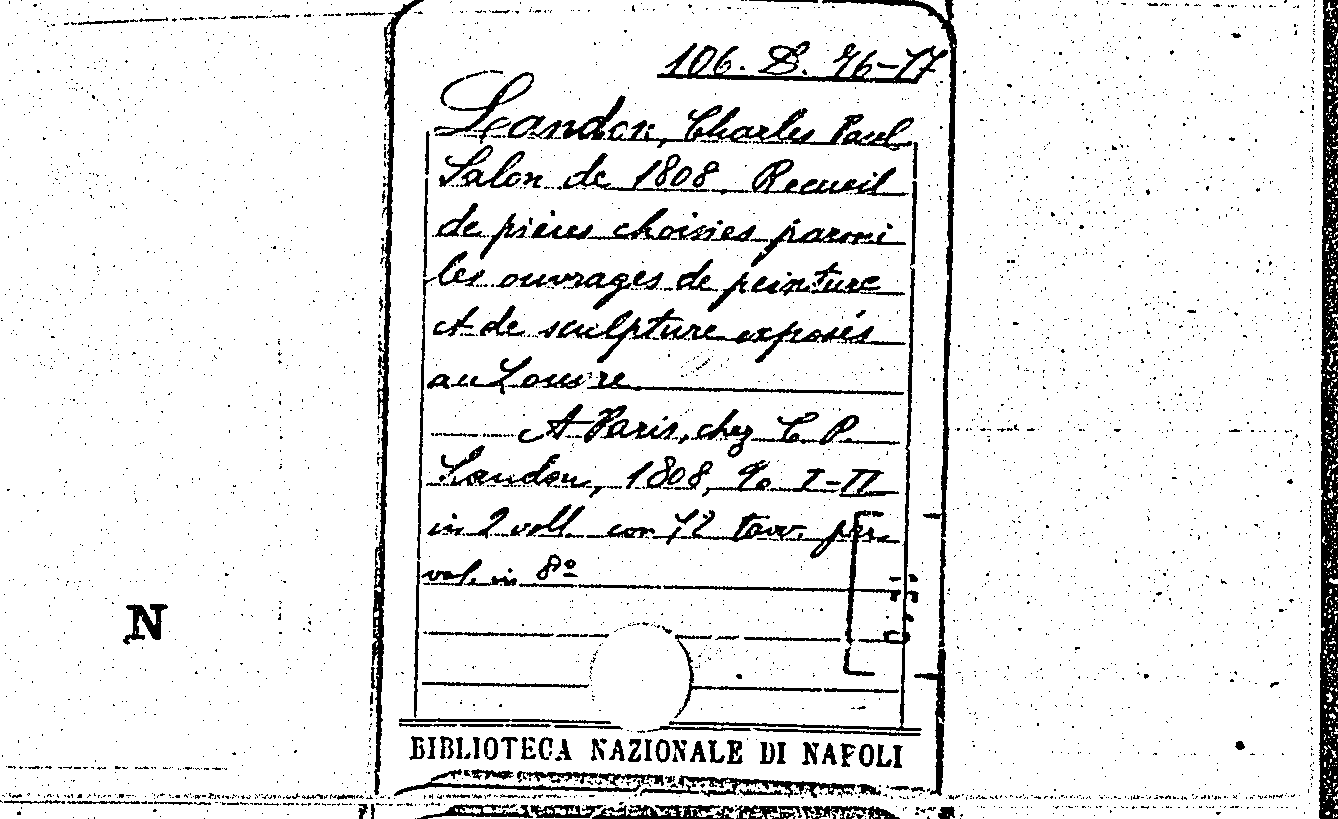 106. D. 76-77
Landon, Charles Paul
Salon de 1808. Recueil
de pièces choisies parmi
les ouvrages de peinture
et de sculpture exposés
au Louvre.
A Paris, chez C. P.
Landon, 1808, I-II
in 2 voll. con 72 tavv. per
vol. in 8º
N
BIBLIOTECA NAZIONALE DI NAPOLI